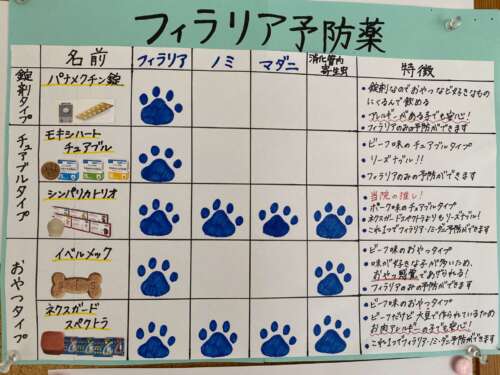 フィラリア予防薬
名前 フィラリア ノミ マダニ 消化管内寄生虫 特徴
錠剤タイプ
パナメクチン錠
• 錠剤なのでおやつなど好きなもの
にくるんで飲める
• アレルギーがある子でも安心!
• フィラリアのみの予防ができます
チュアブルタイプ
モキシハート
チュアブル
• ビーフ味のチュアブルタイプ
• リーズナブル!!
• フィラリアのみの予防ができます
シンパリカトリオ
• 当院の推し!
• ポーク味のチュアブルタイプ
• ネクスガードスペクトラよりもリーズナブル!
• これ1つでフィラリア・ノミ・ダニ予防ができます
おやつタイプ
イベルメック
• ビーフ味のおやつタイプ
• 味が好きな子が多いため、
おやつ感覚であげられる!
• フィラリアのみの予防ができます
ネクスガード
スペクトラ
• ビーフ味のおやつタイプ
• ビーフだけど大豆で作られているため
お肉アレルギーの子でも安心!
• これ1つでフィラリア・ノミ・ダニ予防ができます